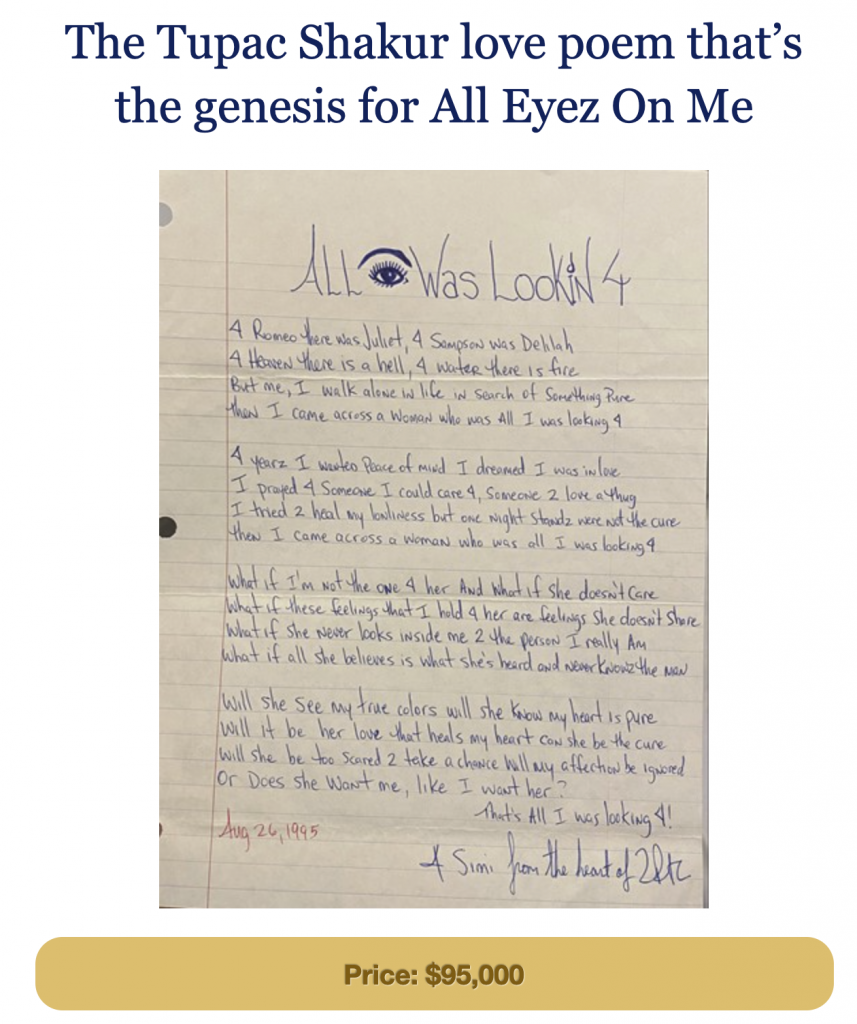 The Tupac Shakur love poem that's
the genesis for All Eyez On Me
ALL 👁 Was LookiN 4
4 Romeo there was Juliet, 4 Sampson was Delilah
4 Heaven there is a hell, 4 water there is fire
But me, I walk alone in life in search of Something Pure
then I came across a Woman who was All I was looking 4
4 yearz I wanted Peace of mind I dreamed I was in love
I prayed 4 Someone I could care 4, Someone 2 love a thug
I tried 2 heal my lonliness but one night Standz were not the cure
then I came across a woman who was all I was looking 4
What if I'm not the one 4 her And What if She doesn't Care
What if these feelings that I hold 4 her are feelings She doesn't Share
What if She Never looks inside me 2 the person I really Am
What if all She believes is what she's heard and never Knowz the man
Will She See my true colors will she Know my heart is pure
Will it be her love that heals my heart can she be the cure
Will She be too Scared 2 take a chance Will my affection be ignored
Or Does She Want me, like I want her?
That's All I was looking 4!
Aug 26, 1995
4 Simi from the heart of 2Pac
Price: $95,000